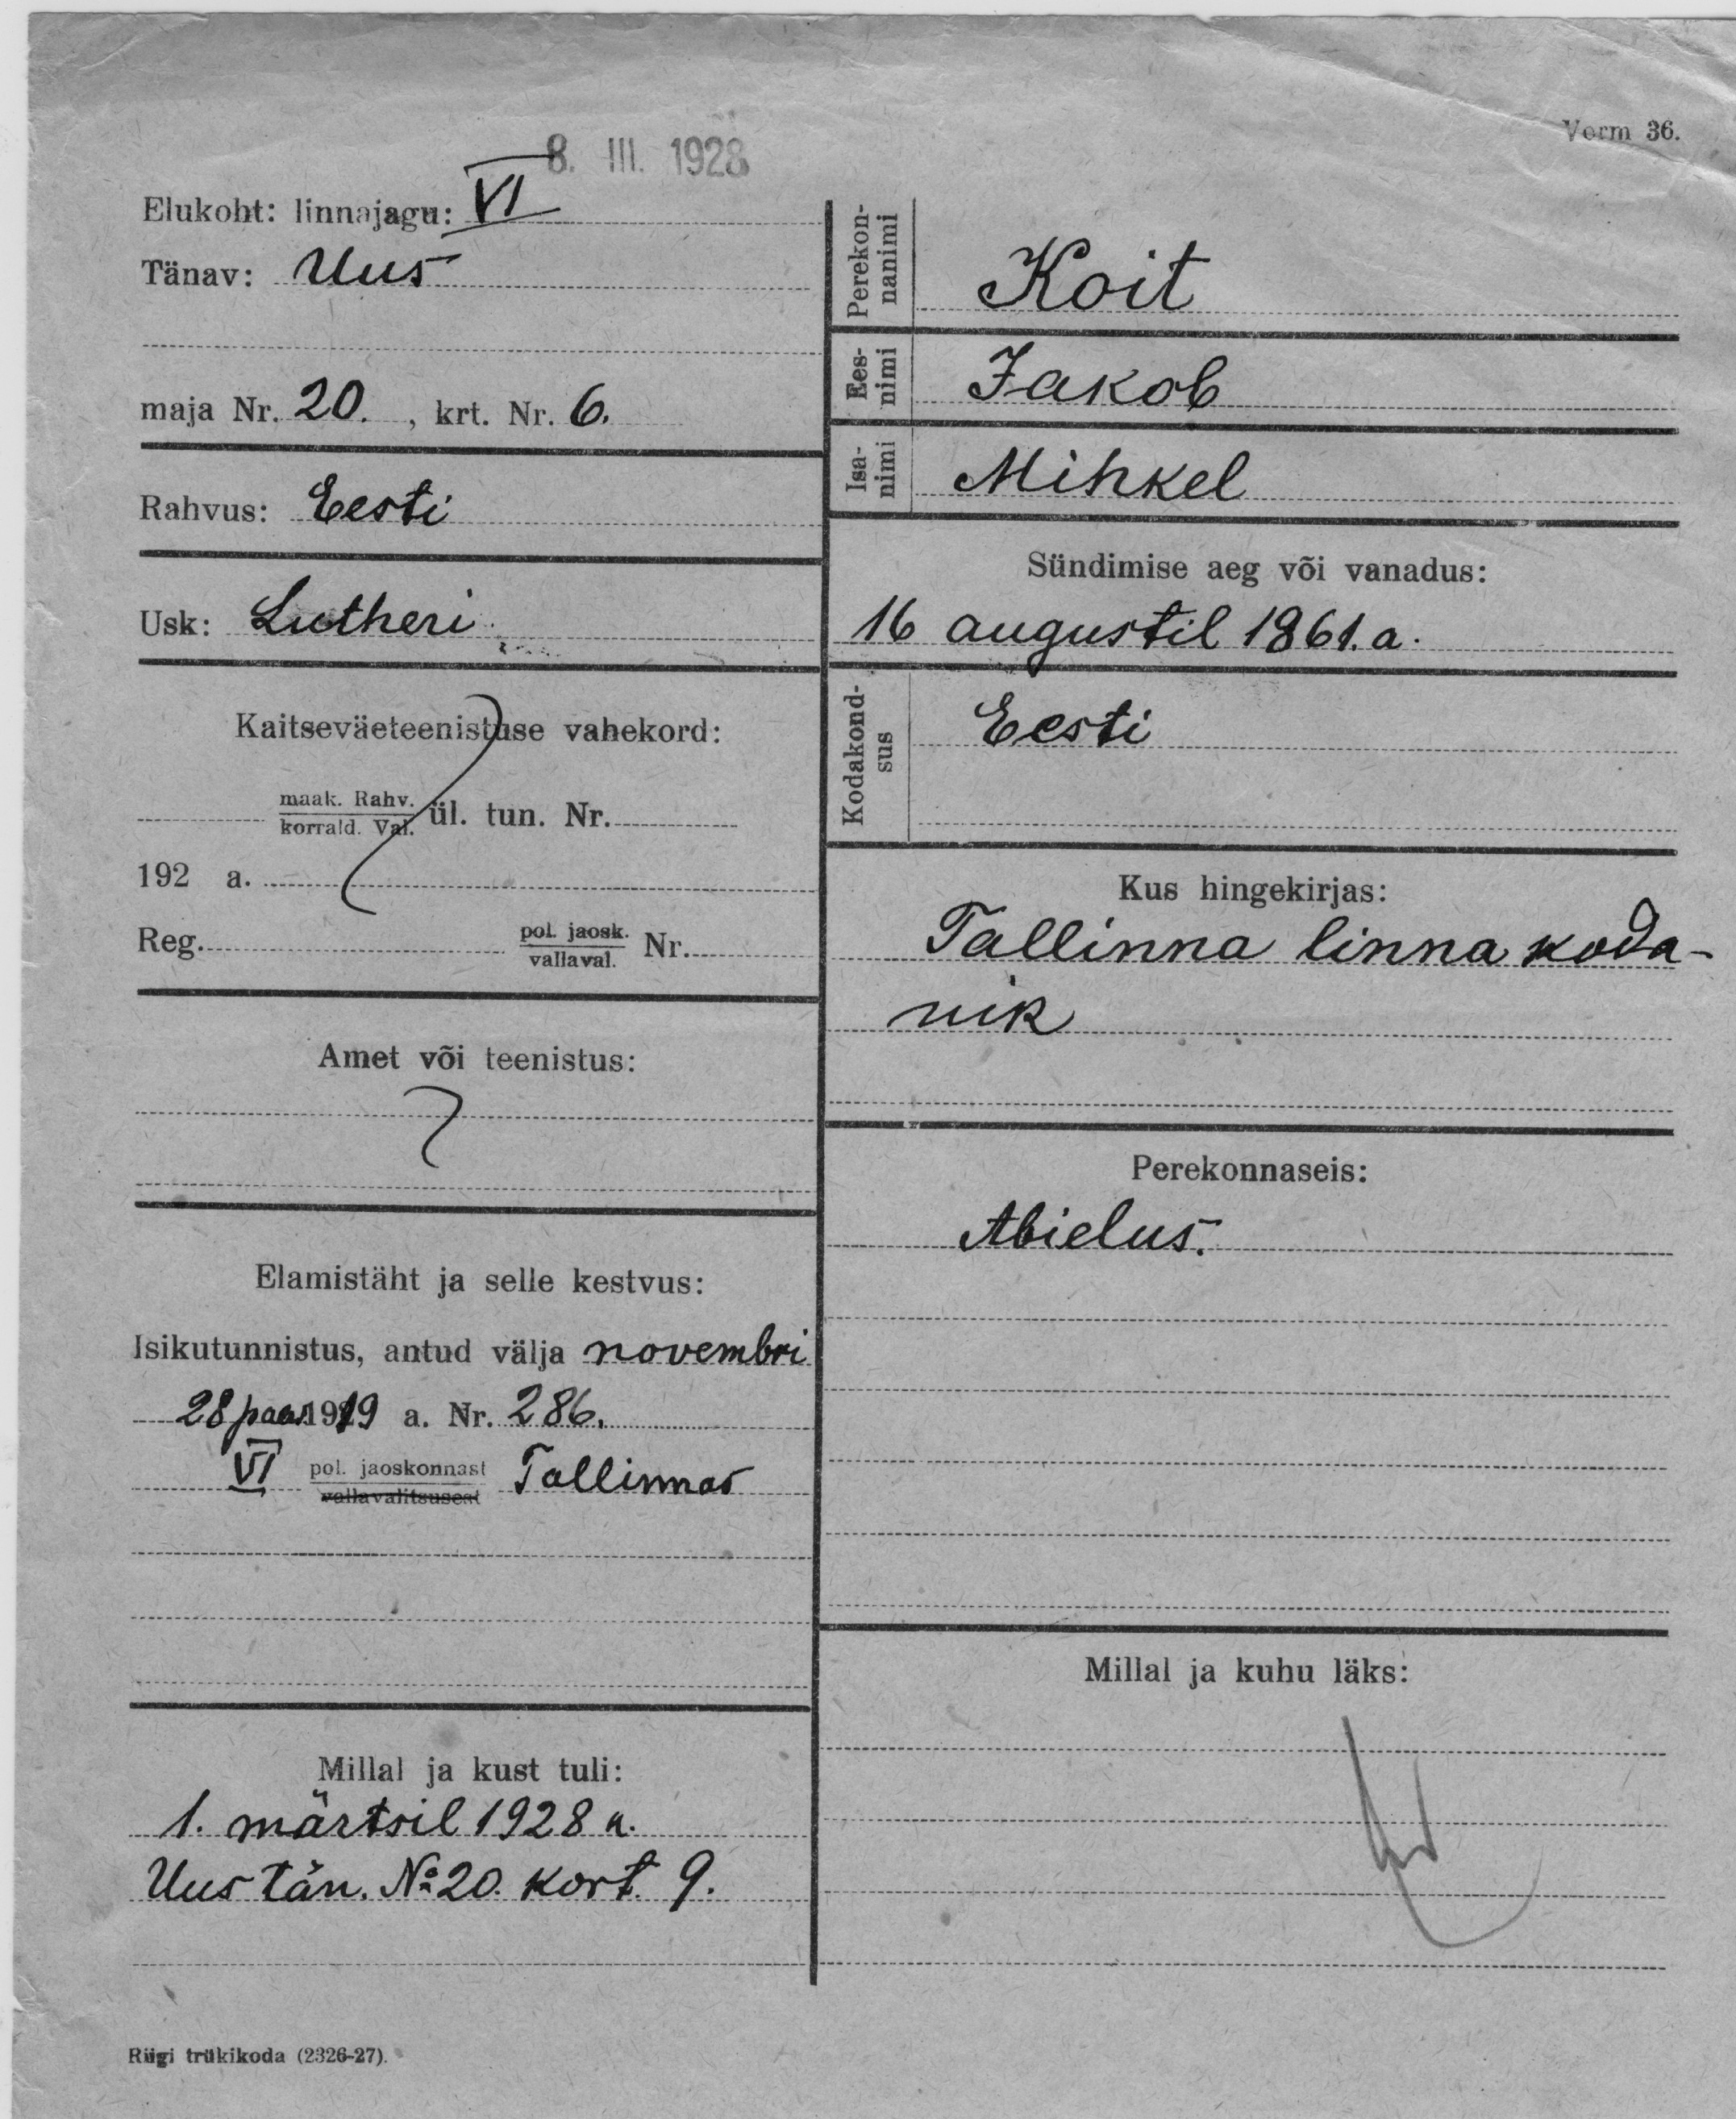 Vorm 36.
8. III. 1928
Elukoht: linnajagu: VI
Tänav: Uus
maja Nr. 20. , krt. Nr. 6.
Rahvus: Eesti
Usk: Lutheri
Kaitseväeteenistuse vahekord:
maak. Rahv.
korrald. Val. ül. tun. Nr.
192 a.
Reg. pol. jaosk. Nr.
vallaval.
Amet või teenistus:
Elamistäht ja selle kestvus:
Isikutunnistus, antud välja novembri
28 1919 a. Nr. 286.
VI pol. jaoskonnast Tallinnas
vallavalitsusest
Millal ja kust tuli:
1. märtsil 1928 a.
Uus tän. № 20. kort. 9.
Riigi trükikoda (2326-27).
Perekon-
nanimi
Koit
Ees-
nimi
Jakob
Isa-
nimi
Mihkel
Sündimise aeg või vanadus:
16 augustil 1861. a.
Kodakond-
sus
Eesti
Kus hingekirjas:
Tallinna linna koda-
nik
Perekonnaseis:
Abielus.
Millal ja kuhu läks: